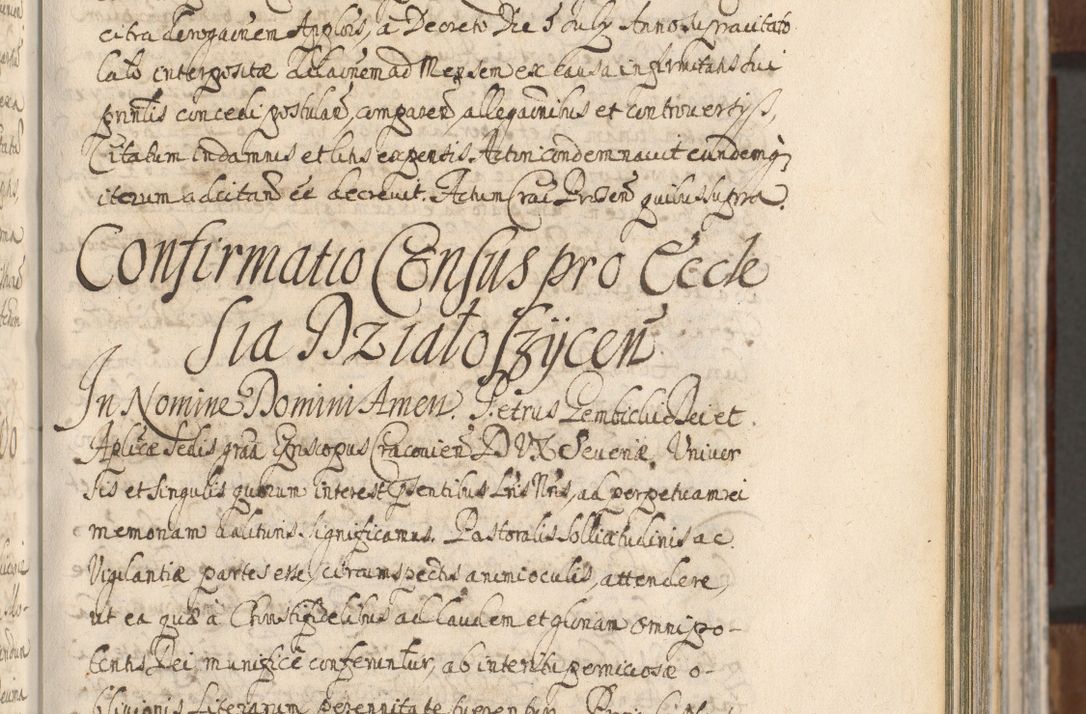 citra derogaōnem Applōis, a Decreto Die 5 July Anno supra citato
lato interpositæ dilaōnem ad Mensem ex causa infirmitatis sui
prinlis concedi postulan̄, comparen̄, allegaōnibus et controversijs,
Citatum in damnis et litis expensis Actori condemnavit eundemq;
iterum ad citan̄ ēe decrevit. Actum Crac̄ Præsen̄ quibus supra.
Confirmatio Census pro Eccle
sia Działoszÿcen̄
In Nomine Domini Amen. Petrus Gembicki Dei et
Aplicæ Sedis grāa Episcopus Cracovien̄ DUX Severiæ. Univer
sis et singulis quorum interest p̄sentibus Lrīs Nrīs, ad perpetuam rei
memoriam habituris significamus. Pastoralis sollicitudinis ac
Vigilantiæ partes esse, circumspectis animi oculis, attendere,
ut ea quæ à Christifidelibus ad laudem et gloriam omnipo-
tentis Dei, munificè conferuntur, ab interitu perniciosæ o-
blivionis Literarum perennitate tuerentur.